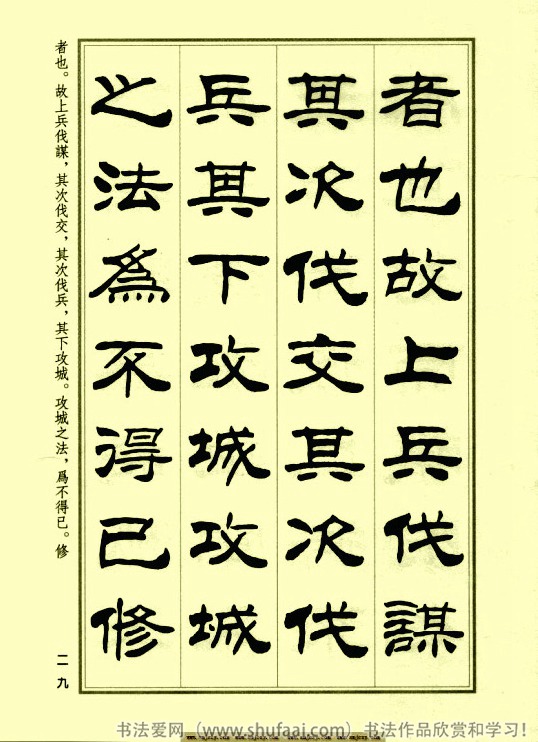 者也故上兵伐謀
其次伐交其次伐
兵其下攻城攻城
之法爲不得已修
者也。故上兵伐謀，其次伐交，其次伐兵，其下攻城。攻城之法，爲不得已。修
二九
书法爱网（www.shufaai.com）书法作品欣赏和学习！